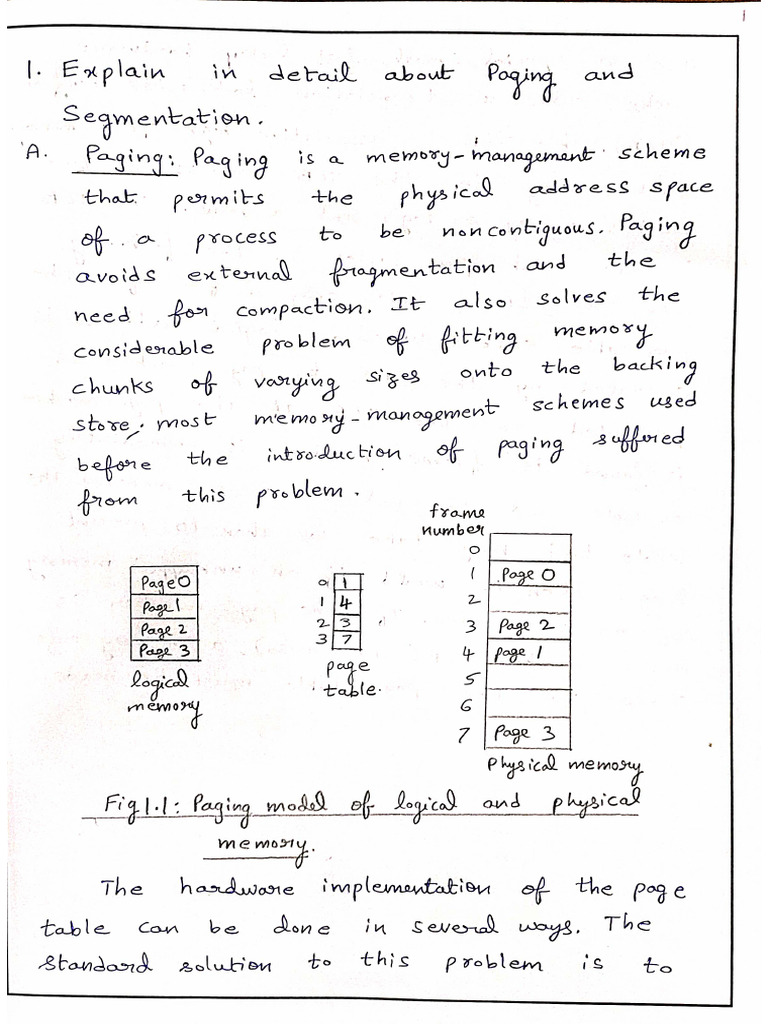 1
1. Explain in detail about Paging and
Segmentation.
A. Paging: Paging is a memory-management scheme
that permits the physical address space
of a process to be noncontiguous. Paging
avoids external fragmentation and the
need for compaction. It also solves the
considerable problem of fitting memory
chunks of varying sizes onto the backing
store; most memory-management schemes used
before the introduction of paging suffered
from this problem.
Page 0
Page 1
Page 2
Page 3
logical
memory
0 1
1 4
2 3
3 7
page
table.
frame
number
0
1 Page 0
2
3 Page 2
4 page 1
5
6
7 Page 3
Physical memory
Fig 1.1: Paging model of logical and physical
memory.
The hardware implementation of the page
table can be done in several ways. The
standard solution to this problem is to